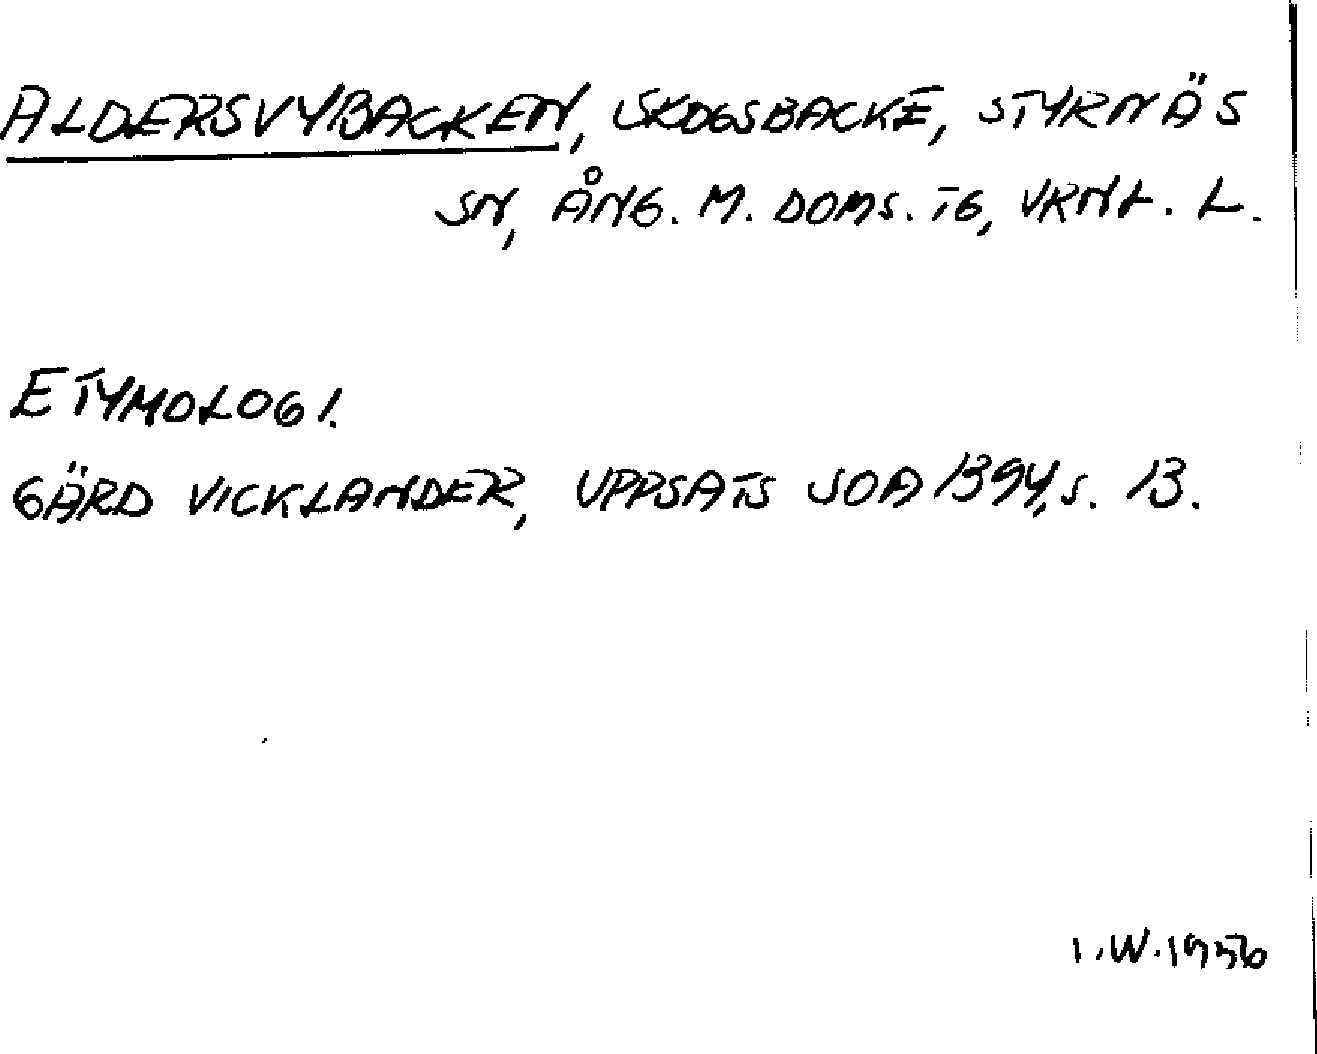 ALDERSVYBACKEN, SKOGSBACKE, STYRNÄS
SN, ÅNG. M. DOMS. TG, VRNL. L.
ETYMOLOGI.
GÄRD VICKLANDER, UPPSATS SOA 1394, S. 13.
I.W. 1956